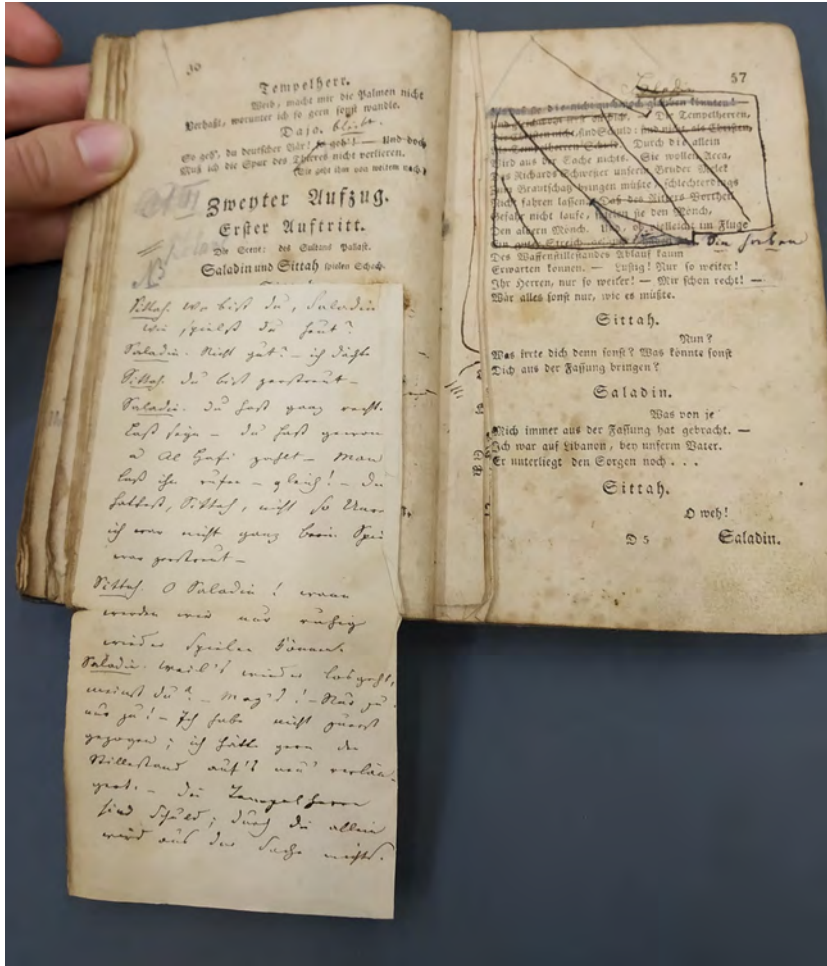 30
Tempelherr.
Weib, macht mir die Palmen nicht
Verhaßt, worunter ich so gern sonst wandle.
Daja. bleibt.
So geh', du deutscher Bär! so geh'! — Und doch
Muß ich die Spur des Thieres nicht verlieren.
(Sie geht ihm von weitem nach.)
Zweyter Aufzug.
Erster Auftritt.
Die Scene: des Sultans Pallast.
Saladin und Sittah spielen Schach.
Sittah. Wo bist du, Saladin
wie spielst du heut?
Saladin. Nicht gut? – ich dächte
Sittah. du bist zerstreut –
Saladin. du hast ganz recht.
laß seyn – du hast gewon
u Al Hafi zahlt – Man
laß ihn rufen – gleich! – du
hattest, Sittah, nicht so Unre
ich war nicht ganz beim Spie
war zerstreut –
Sittah. O Saladin! wann
werden wir nur ruhig
wieder spielen können.
Saladin. weil's wieder losgeht,
meinst du? – Mag's! – Nur zu
nur zu! – Ich habe nicht zuerst
gezogen; ich hätte gern den
Stillestand auf's neu' verlän-
gert. – die Tempelherrn
sind Schuld; durch die allein
wird aus der Sache nichts.
57
Saladin
die nicht
— Die Tempelherren,
Die Christen nicht, sind Schuld: sind nicht, als Christen,
Als Tempelherren Schuld. Durch die allein
Wird aus der Sache nichts. Sie wollen Acca,
Das Richards Schwester unserm Bruder Melek
Zum Brautschatz bringen müßte, schlechterdings
Nicht fahren lassen. Daß des Ritters Vortheil
Gefahr nicht laufe, spielen sie den Mönch,
Den albern Mönch. Und ob vielleicht im Fluge
Ein guter Streich
Des Waffenstillestandes Ablauf kaum
Erwarten können. — Lustig! Nur so weiter!
Ihr Herren, nur so weiter! — Mir schon recht! —
Wär alles sonst nur, wie es müßte.
Sittah.
Nun?
Was irrte dich denn sonst? Was könnte sonst
Dich aus der Fassung bringen?
Saladin.
Was von je
Mich immer aus der Fassung hat gebracht. —
Ich war auf Libanon, bey unserm Vater.
Er unterliegt den Sorgen noch . . .
Sittah.
O weh!
D 5 Saladin.